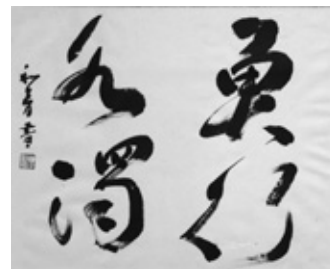 魚行
水濁